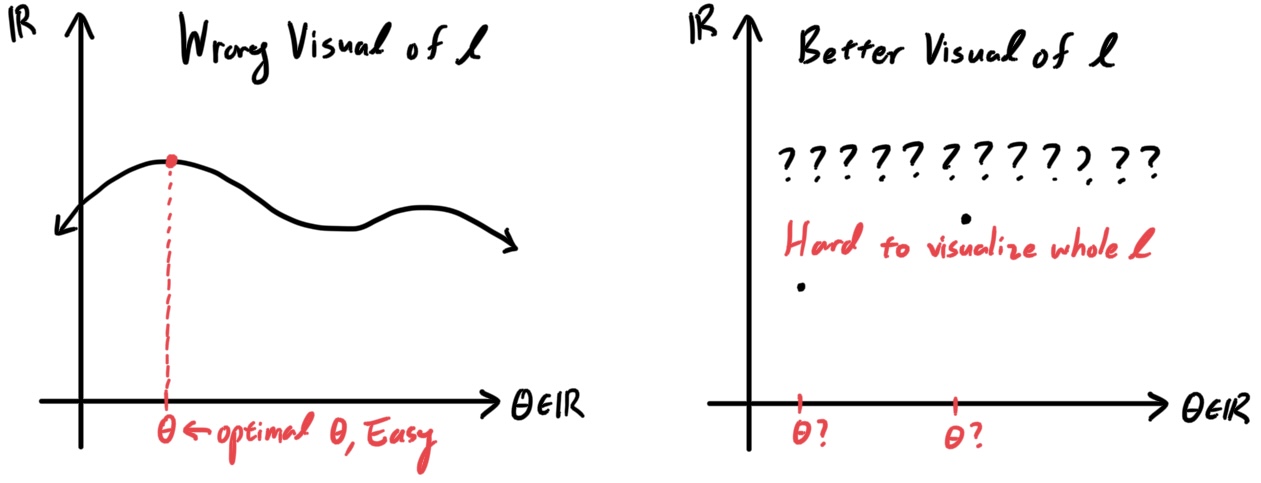 ℝ
Wrong Visual of l
θ∈ℝ
θ ← optimal θ, Easy
ℝ
Better Visual of l
? ? ? ? ? ? ? ? ? ? ? ?
Hard to visualize whole l
θ∈ℝ
θ? θ?